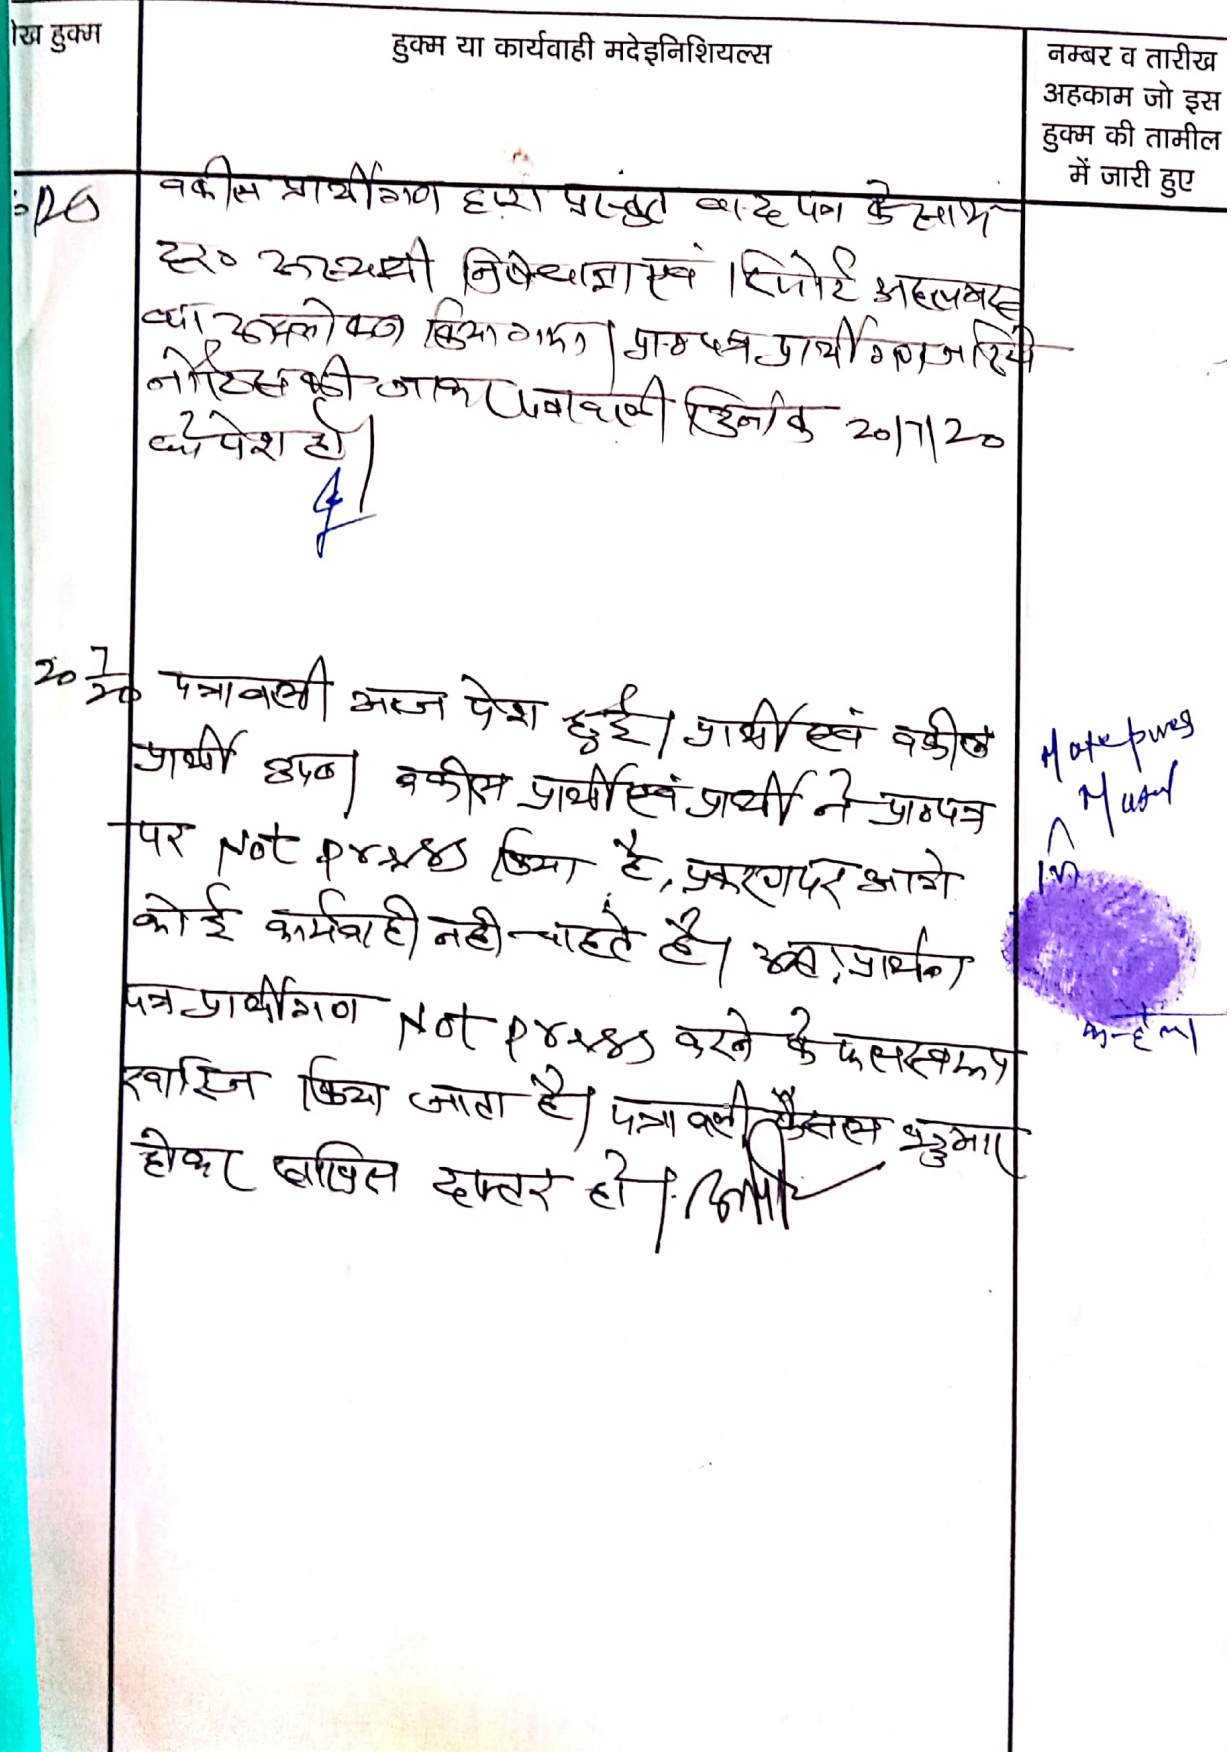 ीख हुक्म
हुक्म या कार्यवाही मदेइनिशियल्स
नम्बर व तारीख
अहकाम जो इस
हुक्म की तामील
में जारी हुए
वकील प्रार्थीगण द्वारा प्रस्तुत वाद पत्र के साथ
अस्थायी निषेधाज्ञा एवं रिपोर्ट अहलमद
का अवलोकन किया गया। प्रा० पत्र प्रार्थीगण जरिये
नोटिस की जाकर पत्रावली दिनांक 20/7/20
को पेश हो।
20 7/20 पत्रावली आज पेश हुई। प्रार्थी एवं वकील
प्रार्थी उप०। वकील प्रार्थी एवं प्रार्थी ने प्रा० पत्र
पर Not press किया है, प्रकरण पर आगे
कोई कार्यवाही नही चाहते है। अतः प्रार्थना
पत्र प्रार्थीगण Not press करने के फलस्वरूप
खारिज किया जाता है। पत्रावली फैसल शुमार
होकर दाखिल दफ्तर हो।
कन्हैला